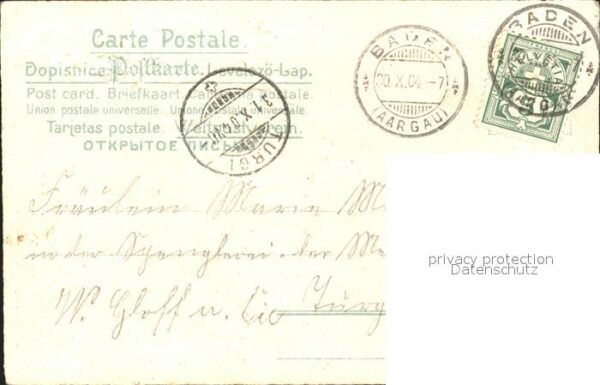 Carte Postale.
Dopisnice. Postkarte. Levelező-Lap.
Post card. Briefkaart postale.
Union postale universelle. Union postale universelle.
Tarjetas postale. Weltpostverein.
ОТКРЫТОЕ
BADEN
30.X.04.-7
(AARGAU)
BADEN
HELVETIA
TURGI
Fräulein Marie
in der Spenglerei der
W. Gloff u. Cie Turg
privacy protection
Datenschutz